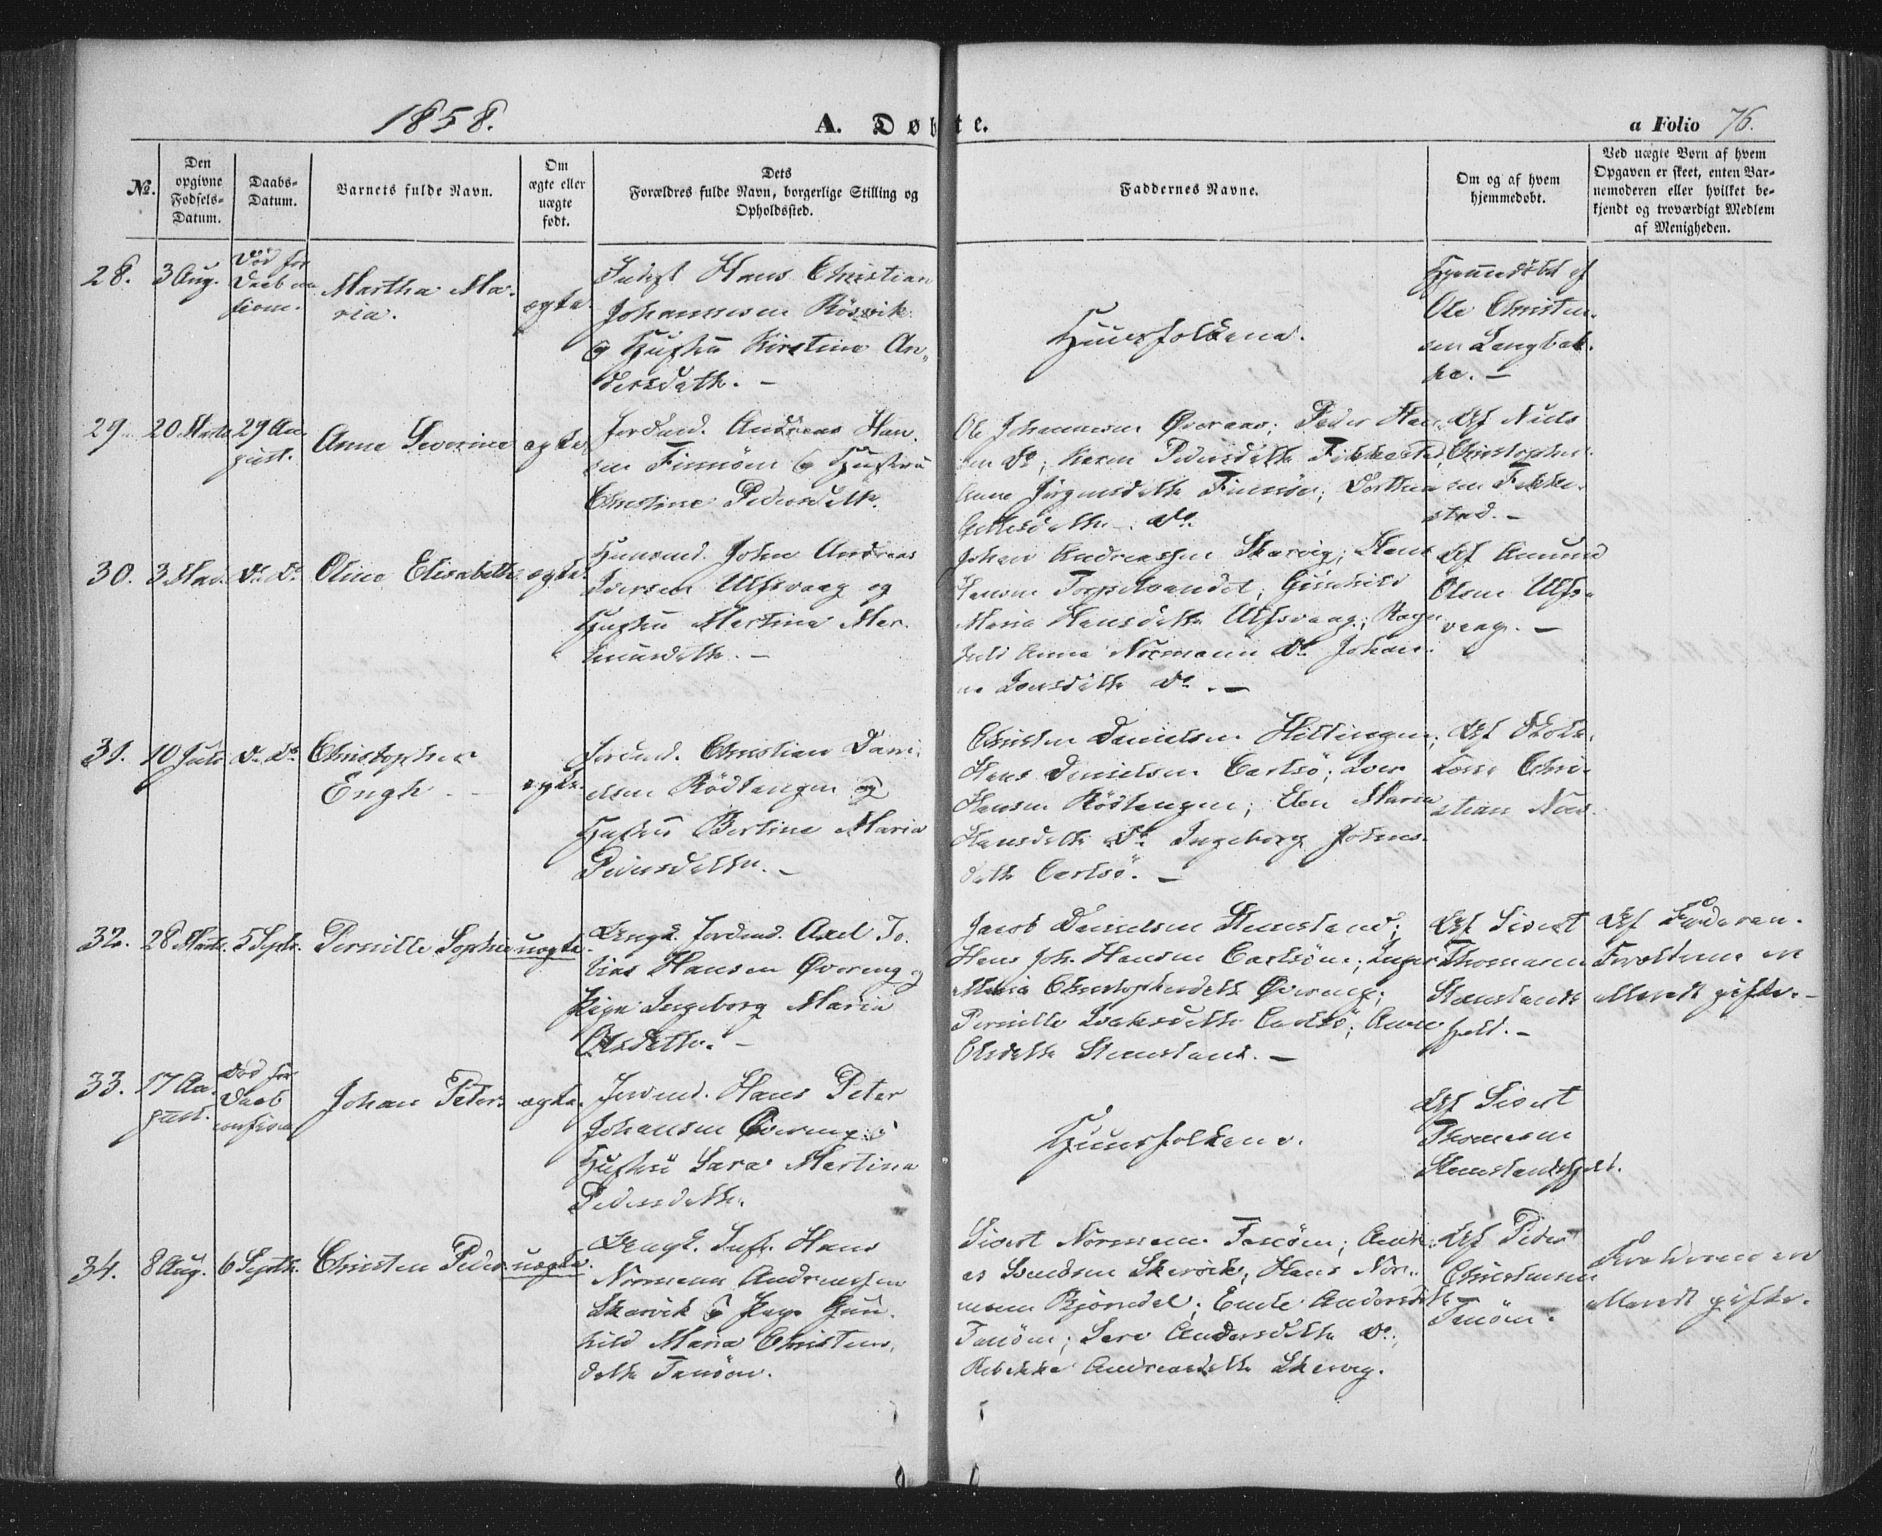 1858.
A. Døbte.
a Folio 76.
No.
Den opgivne Fødsels-Datum.
Daabs-Datum.
Barnets fulde Navn.
Om ægte eller uægte født.
Dets Forældres fulde Navn, borgerlige Stilling og Opholdssted.
Faddernes Navne.
Om og af hvem hjemmedøbt.
Ved uægte Børn af hvem Opgaven er skeet, enten Barnemoderen eller hvilket bekjendt og troværdigt Medlem af Menigheden.
28.
3 Aug.
Død før
Martha Ma-
ria.
ægte.
Hans Christian
Johannesen Rösvik
og Hustru Kirstine An-
dersdatter. -
Huusfolkene.
Hjemmedöbt af
Ole Christen-
sen Langbak-
ke. -
29.
20 Marts
29 Au-
gust.
Anne Severine
ægte
Jordmd. Andreas Han-
sen Finnöen og Hustru
Christine Pedersdatt.
Ole Johannesen Øveraas; Peder Han-
sen Do; Karen Pedersdatter Fikkestad,
Anne Jörgensdatter Finnöen; Dorthea
Do.
Af Niels
Christopher-
sen Fikke-
stad. -
30.
3 Mai.
Do. Do.
Oline Elisabeth
ægte.
Huusmd. John Andreas
Iversen Ulfsvaag og
Hustru Martina Mar-
Johan Andreassen Skarvig; Hans
Hansen Gunhild
Maria Hansdatter Ulfsvaag; Ragn-
hild Anna Normann Do. Johan-
na Larsdatter Do. -
Af Amund
Olsen Ulfs-
vaag. -
31.
10 Juli
Do. Do.
Christopher
Engh.
ægte.
Jordmd. Christian Dani-
elsen Rödtangen og
Hustru Bertine Maria
Pedersdatter. -
Christen Danielsen Hillingen;
Hans Danielsen Carlsö; Iver
Hansen Rödtangen; Elen Maria
Hansdatter Do. Ingeborg Johns-
datter Carlsö. -
Af Skole-
lærer Chri-
stian
32.
28 Marts.
5 Septb.
Pernille Sophie
uægte.
Ungk. Jordmd. Axel To-
bias Hansen Øvereng og
Pige Ingeborg Maria
Olsdatter. -
Jacob Danielsen Stemsland;
Hans Joh. Hansen Carlsöen; Inger
Maria Christophersdatter Øvereng;
Pernille Isaksdatter Carlsö; Anne
Olsdatter Stemsland. -
Af Sivert
Thomasen
Stemslands-
fjeld. -
Af Faderen.
Forældrene ere
allerede gifte. -
33.
17 Au-
gust.
Død før
Daab
Johan Peter.
ægte.
Jordmd. Hans Peter
Johansen Øvereng og
Hustru Sara Martina
Pedersdatter.
Huusfolkene.
Af Sivert
Thomasen
Stemslandsfjeld.
34.
8 Aug.
6 Septb.
Christen Peder
uægte.
Ungk. Inds. Hans
Normann Andreassen
Skarvik og Pige Gun-
hild Maria Christens-
datter Tanöen.
Sivert Normann Tanöen; Andre-
as Svendsen Skarvik; Hans Nor-
mann Bjørndal; Andersdatter
Tanöen; Sara Andersdatter Do;
Rebekka Andreasdatter Skarvig.
Af Peder
Christensen
Tanöen.
Forældrene ere
allerede gifte.